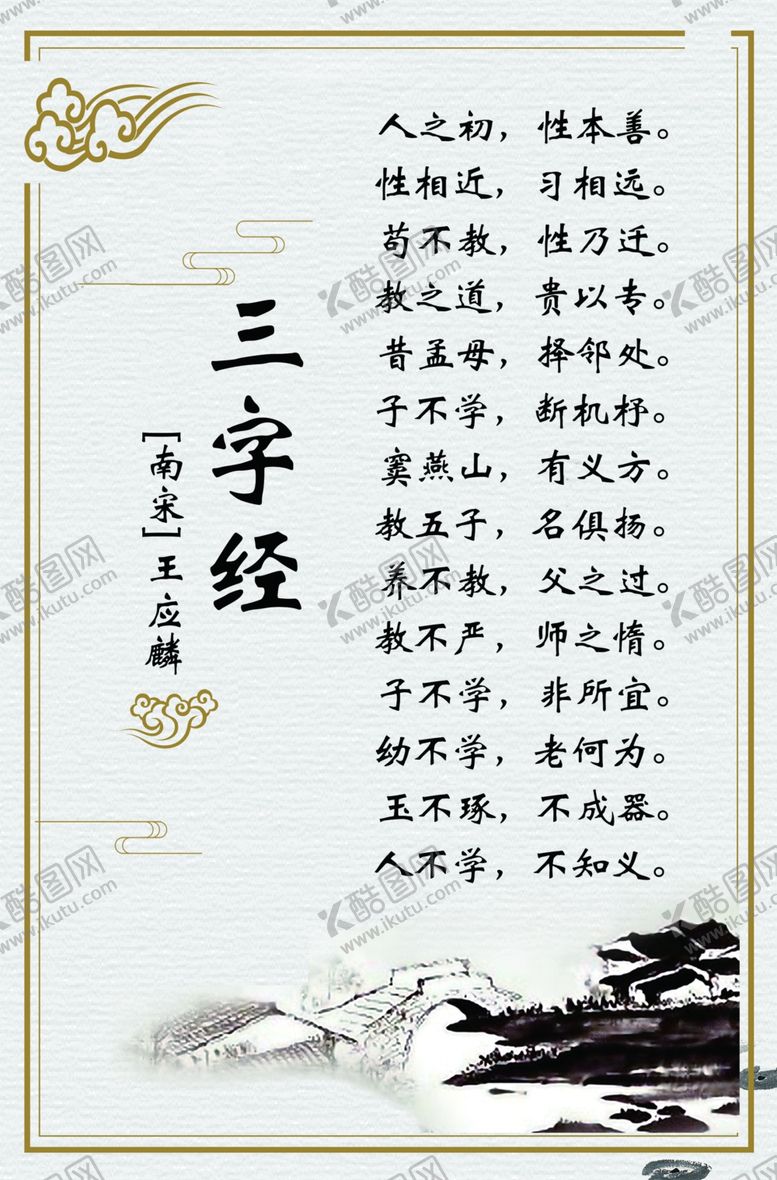 三字经
[南宋]王应麟
人之初，性本善。
性相近，习相远。
苟不教，性乃迁。
教之道，贵以专。
昔孟母，择邻处。
子不学，断机杼。
窦燕山，有义方。
教五子，名俱扬。
养不教，父之过。
教不严，师之惰。
子不学，非所宜。
幼不学，老何为。
玉不琢，不成器。
人不学，不知义。
酷图网
www.ikutu.com